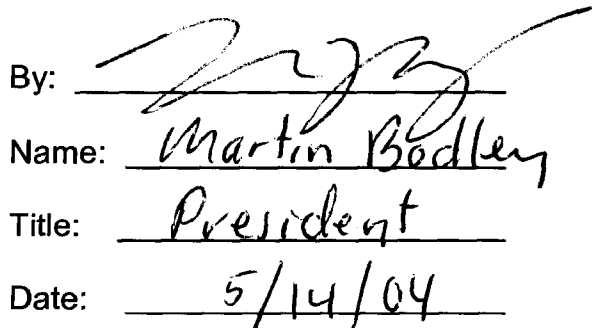 By:
Name: Martin Bodley
Title: President
Date: 5/14/04